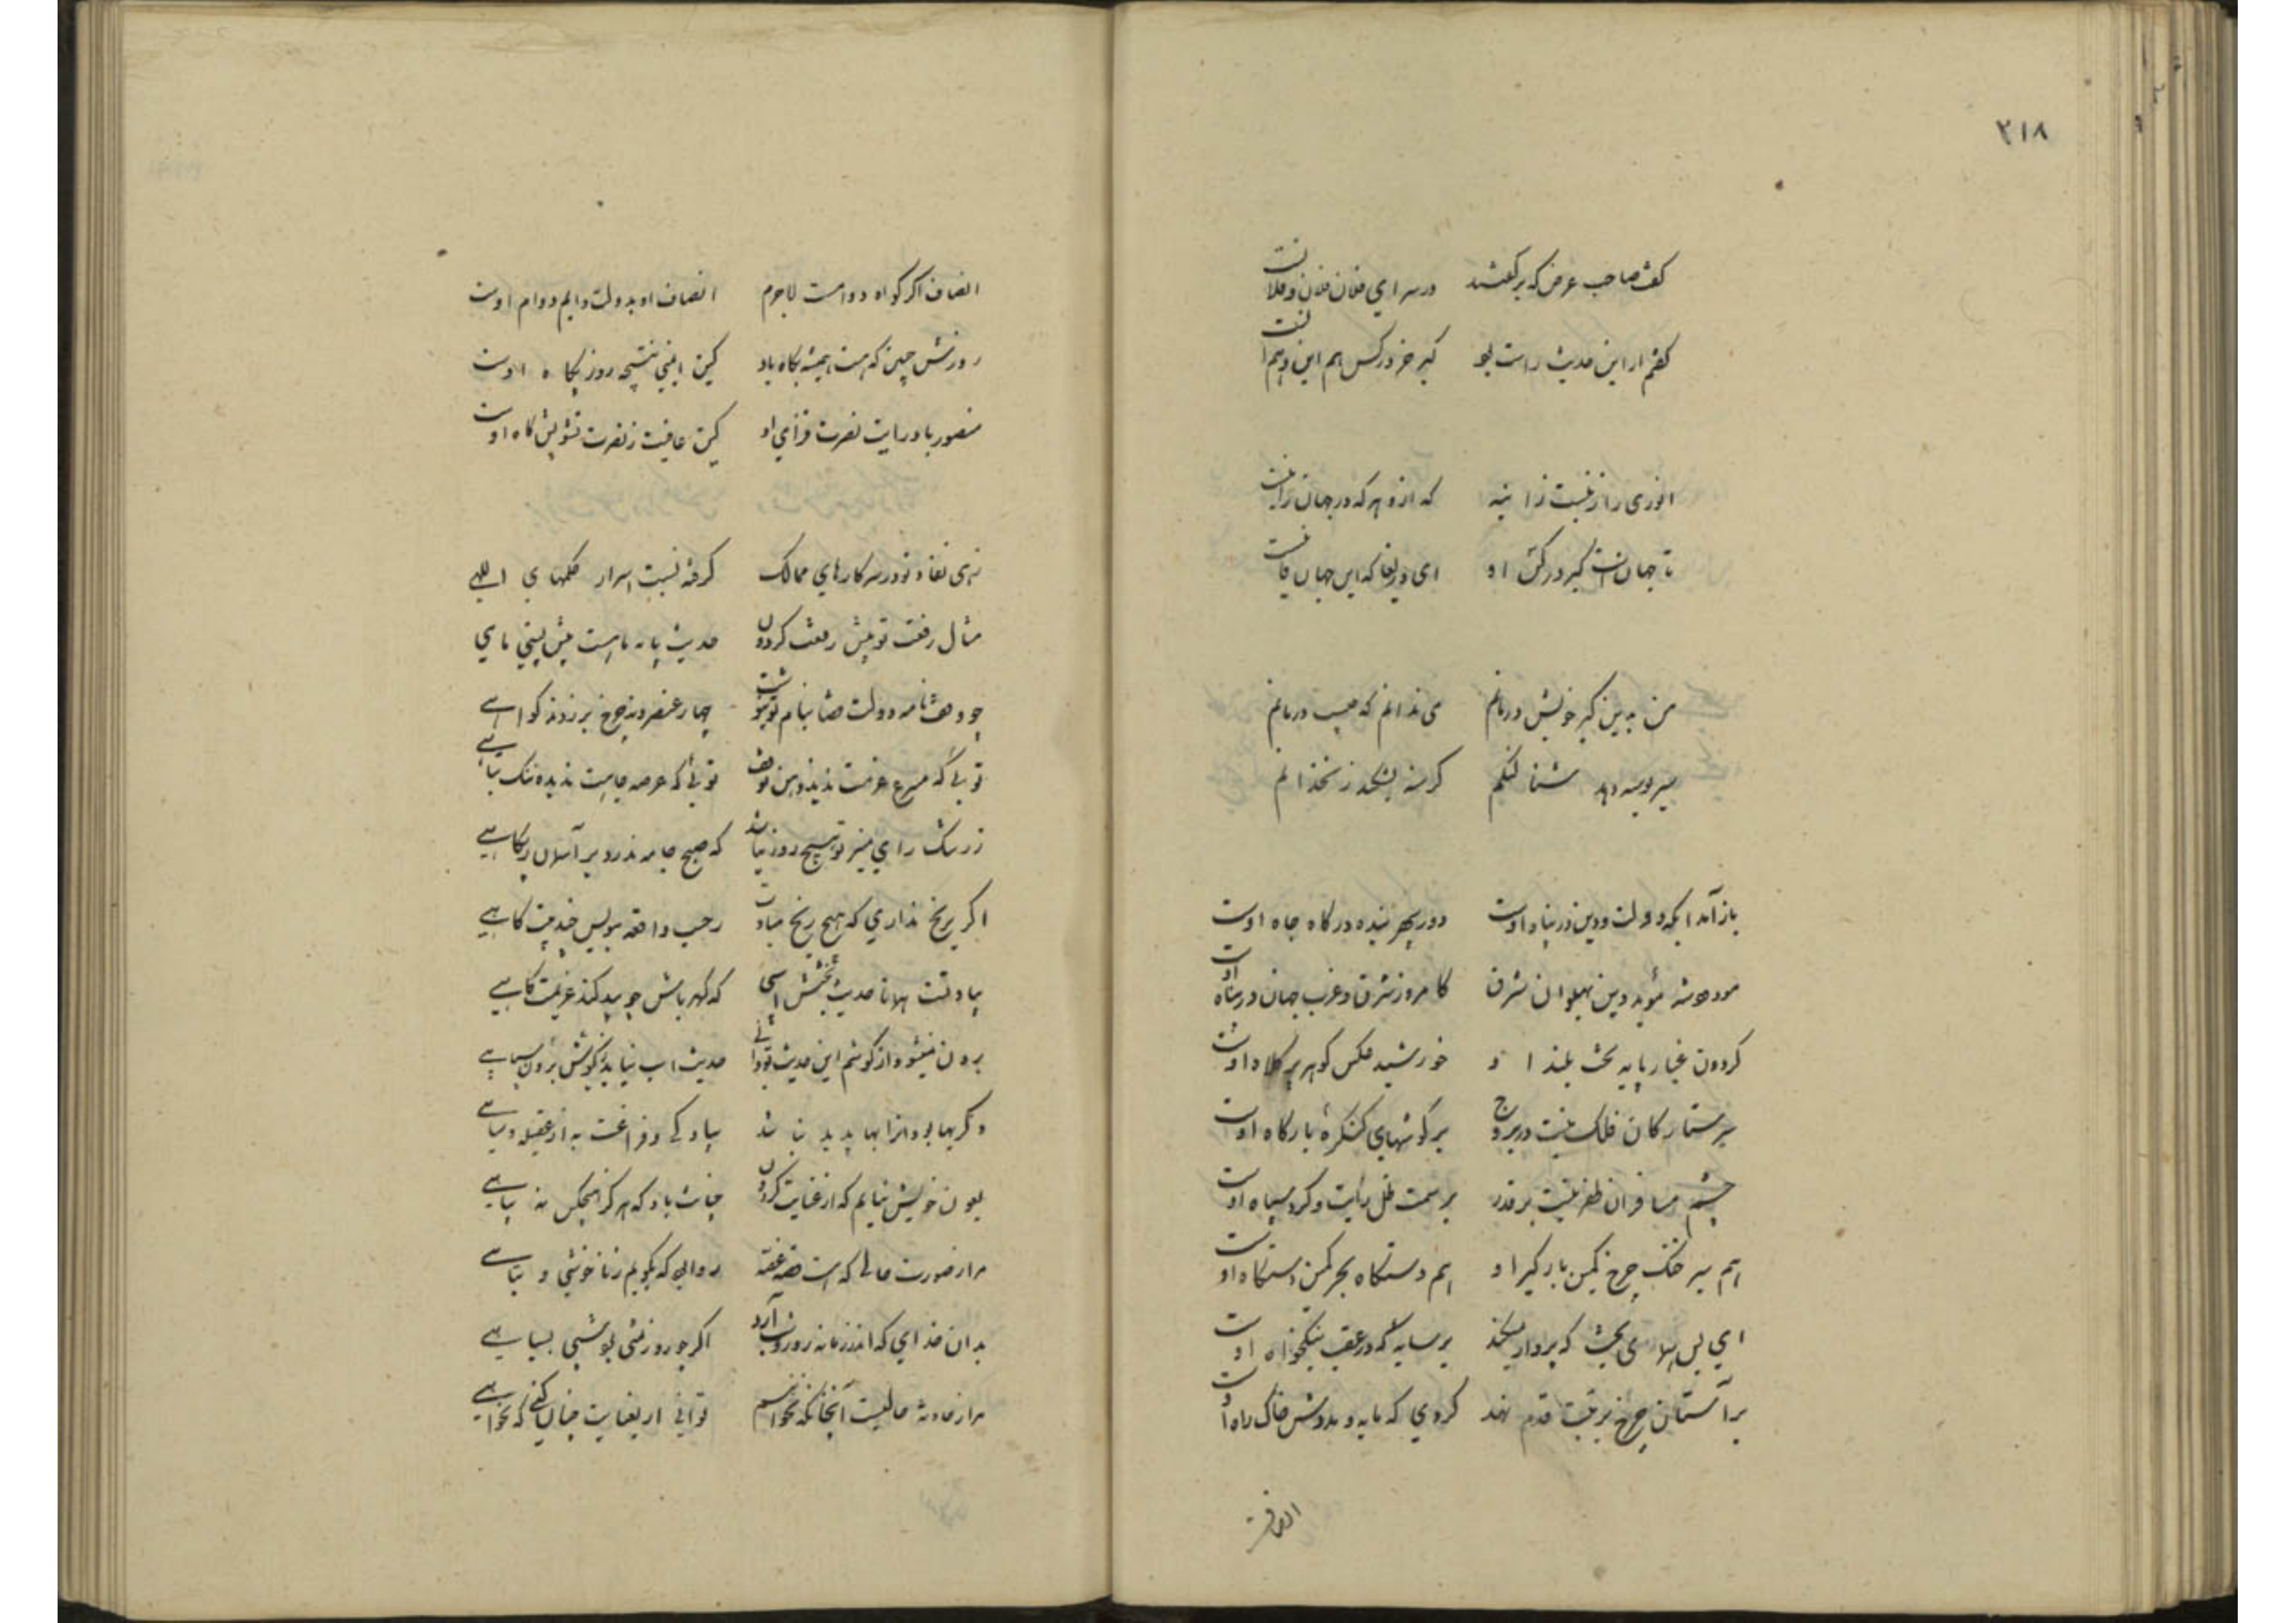 ۳۱۸
گفت صاحب غرض که برگفتند در سرای فلان فلان و فلانست
گفتم ار این حدیث راست بود کیر خر در کس هم این و هم آنست
انوری را زنیست زانیه که ازو هر که در جهان زانیست
تا جهانست کیر در کس او ای دریغا که این جهان فانیست
من بدین کیر خویش درمانم می ندانم که چیست درمانم
سیر بوسه دهد شنا لنگم گرسنه بشکند زنخدانم
باز آمد آنکه دولت و دین در پناه اوست دور سپهر بنده درگاه جاه اوست
مودود شه مؤید دین پهلوان شرق کامروز شرق و غرب جهان در پناه اوست
گردون غبار پایه تخت بلند او خورشید عکس گوهر پر کلاه اوست
سیر ستارگان فلک نیست در بروج بر گوشهای کنگره بارگاه اوست
چشم مسافران ظفر نیست بر قدر بر سمت ظل رایت و گرد سپاه اوست
هم سیر خنگ چرخ کمین بارگیر او هم دستگاه بحر کمین دستگاه اوست
ای بس همای بخت که پرواز میکند بر سایه که در عقب نیکخواه اوست
بر آستان چرخ بمنت قدم نهد گردی که مایه و مددش خاک راه اوست
انصاف
انصاف اگر گواه دوامست لاجرم انصاف او بدولت دایم دوام اوست
روزش چنین که هست همیشه بگاه باد کین ایمنی نتیجه روز بگاه اوست
منصور باد رایت نصرت فزای او کین عافیت ز نصرت تشویش کاه اوست
زهی نفاذ تو در سر کارهای ممالک گرفته نسبت اسرار حکمهای الهی
مثال رفعت تو پیش رفعت گردون حدیث پایه ماهست پیش پستی ماهی
چو وقف نامه دولت قضا بنام تو بنوشت چهار عنصر و نه چرخ برزدند گواهی
توئی که مسرع عزمت ندید وهن توقف توئی که عرصه جاهت ندیده ننگ تباهی
ز رشک رای منیر تو هیچ روز نباشد که صبح جامه ندرد بر آسمان پگاهی
اگر برنج نداری که هیچ رنج مبادت بحسب واقعه بنویس خدمت گاهی
بیاد تست همانا حدیث بخشش اسبی که کهربایش چو بیند کند عزیمت کاهی
برون نمیشود از گوشم این حدیث تو دانی حدیث اسب نیاید بگوش برون سپاهی
دگر بها بود آنرا بها پدید نباشد بیاد کی و فراغت به از عقیله و باهی
بعون خویش نیابم که از عنایت گردون چنانت باد که هرگز بهیچکس نه پناهی
مرا ز صورت حالی که هست قصه غصه روا بود که بگویم ز ناخوشی و تباهی
بدان خدای که اندر زمانه روز و شب آرد اگر چو روز منی بود شبی بسیاهی
مرا ز حادثه حالیست آنچنانکه نخواهم توانی ار بعنایت چنان کنی که بخواهی